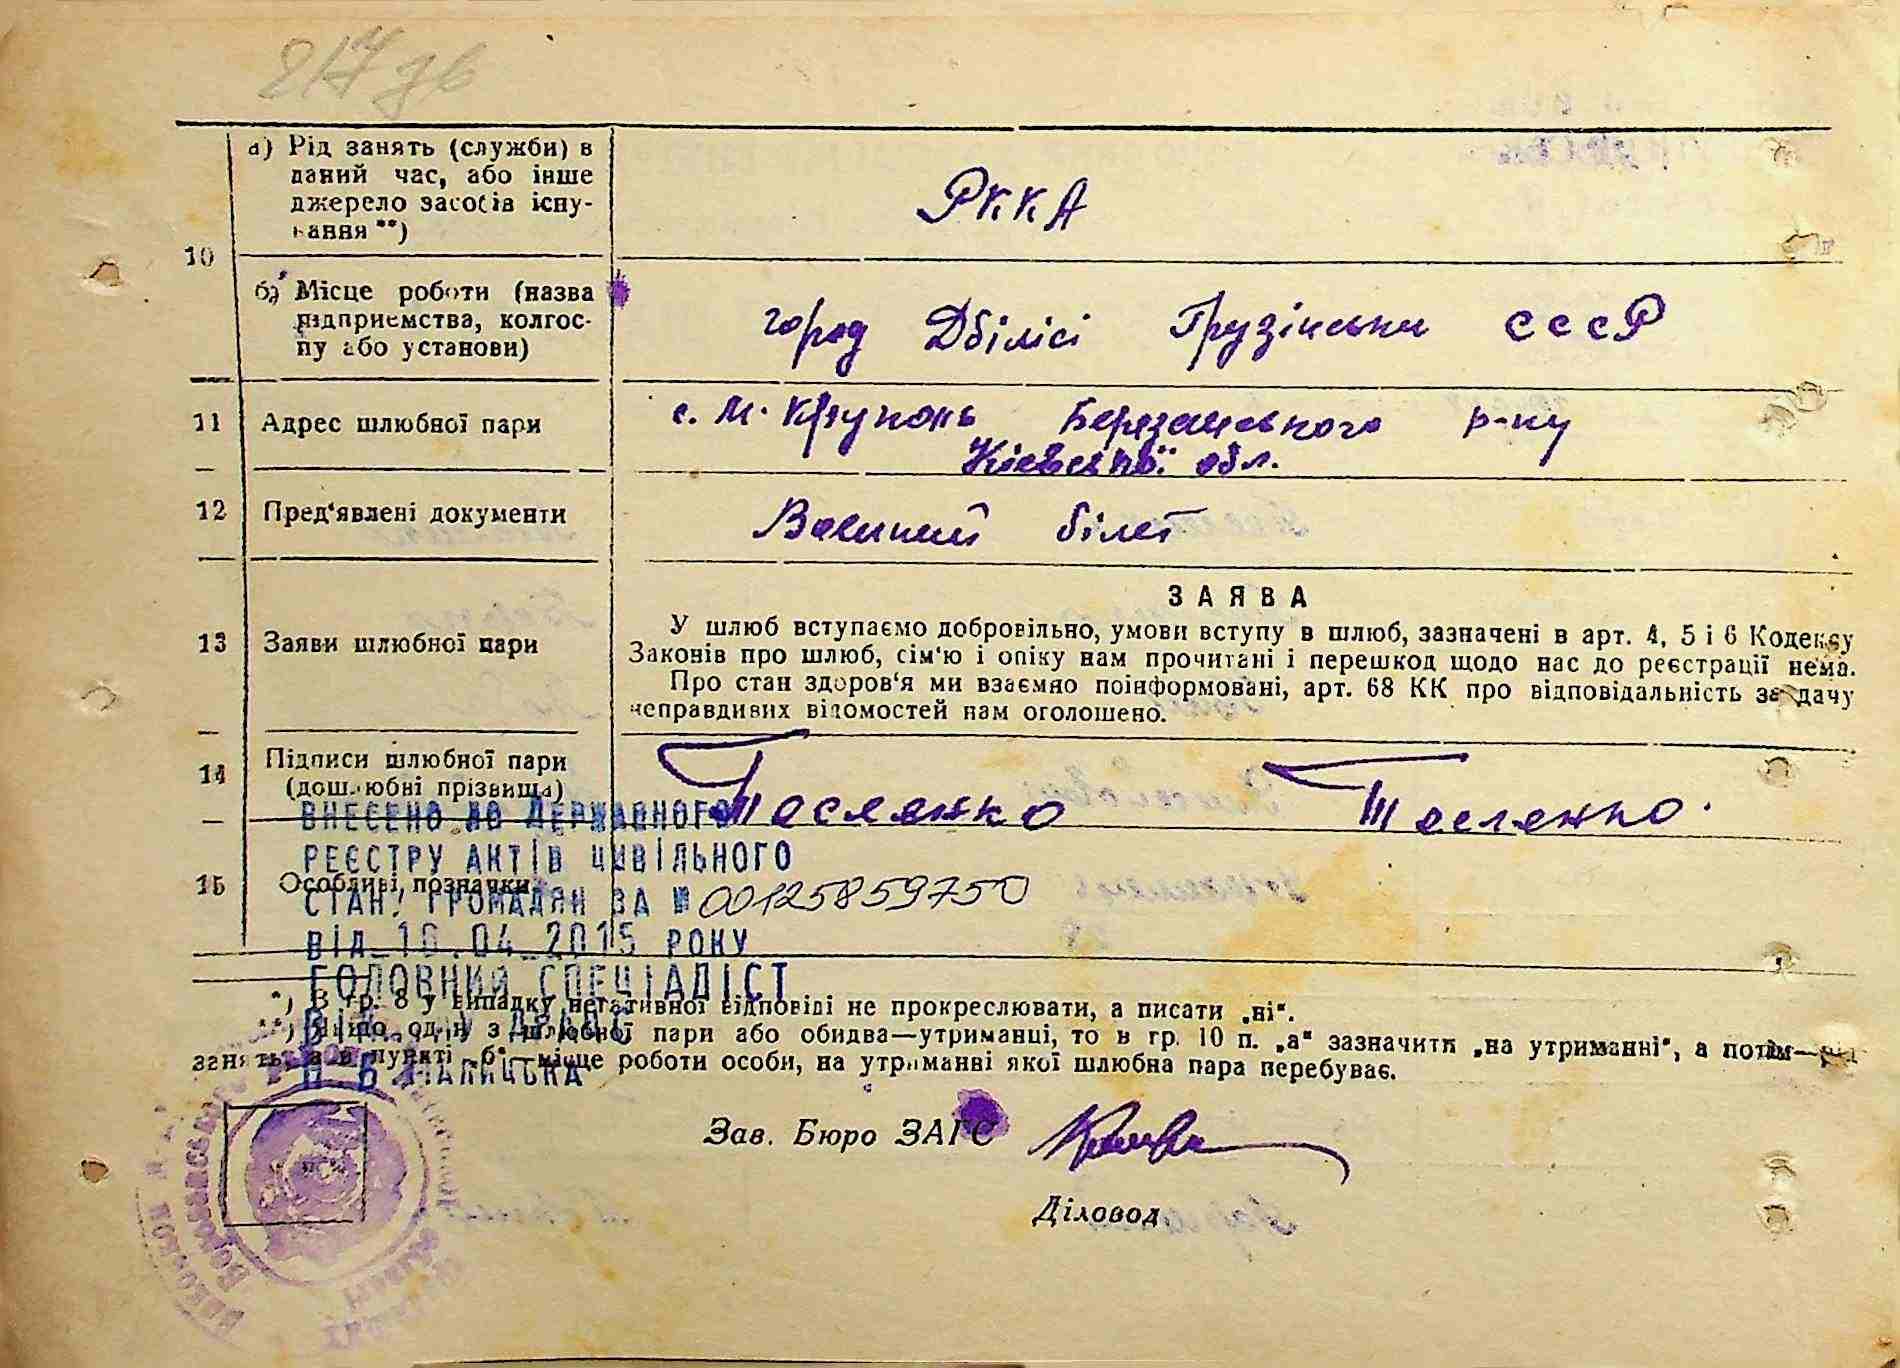 217 зв
а) Рід занять (служби) в
даний час, або інше
джерело засобів існу-
вання **)
РККА
10
б) Місце роботи (назва
підприємства, колгос-
пу або установи)
город Дбілісі Грузінськи СССР
11 Адрес шлюбної пари
с. М. Крупонь Березанського р-ну
Кієвської обл.
12 Пред'явлені документи
Воєнний білет
ЗАЯВА
13 Заяви шлюбної пари
У шлюб вступаємо добровільно, умови вступу в шлюб, зазначені в арт. 4, 5 і 6 Кодексу
Законів про шлюб, сім'ю і опіку нам прочитані і перешкод щодо нас до реєстрації нема.
Про стан здоров'я ми взаємно поінформовані, арт. 68 КК про відповідальність за дачу
неправдивих відомостей нам оголошено.
14 Підписи шлюбної пари
(дошлюбні прізвища)
Тесленко Тесленко.
ВНЕСЕНО ДО ДЕРЖАВНОГО
РЕЄСТРУ АКТІВ ЦИВІЛЬНОГО
15 Особливі позначки
СТАНУ ГРОМАДЯН ЗА № 00125859750
ВІД 16.04.2015 РОКУ
ГОЛОВНИЙ СПЕЦІАЛІСТ
*) В гр. 8 у випадку негативної відповіді не прокреслювати, а писати „ні“.
**) Якщо один з шлюбної пари або обидва—утриманці, то в гр. 10 п. „а“ зазначити „на утриманні“, а потім—рід
занять, а в пункті „б“—місце роботи особи, на утриманні якої шлюбна пара перебуває.
Зав. Бюро ЗАГС
Діловод